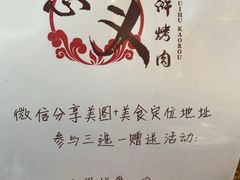 义
烤肉
UIHU KAOROU
微信分享美图+美食定位地址
参与三选一赠送活动: